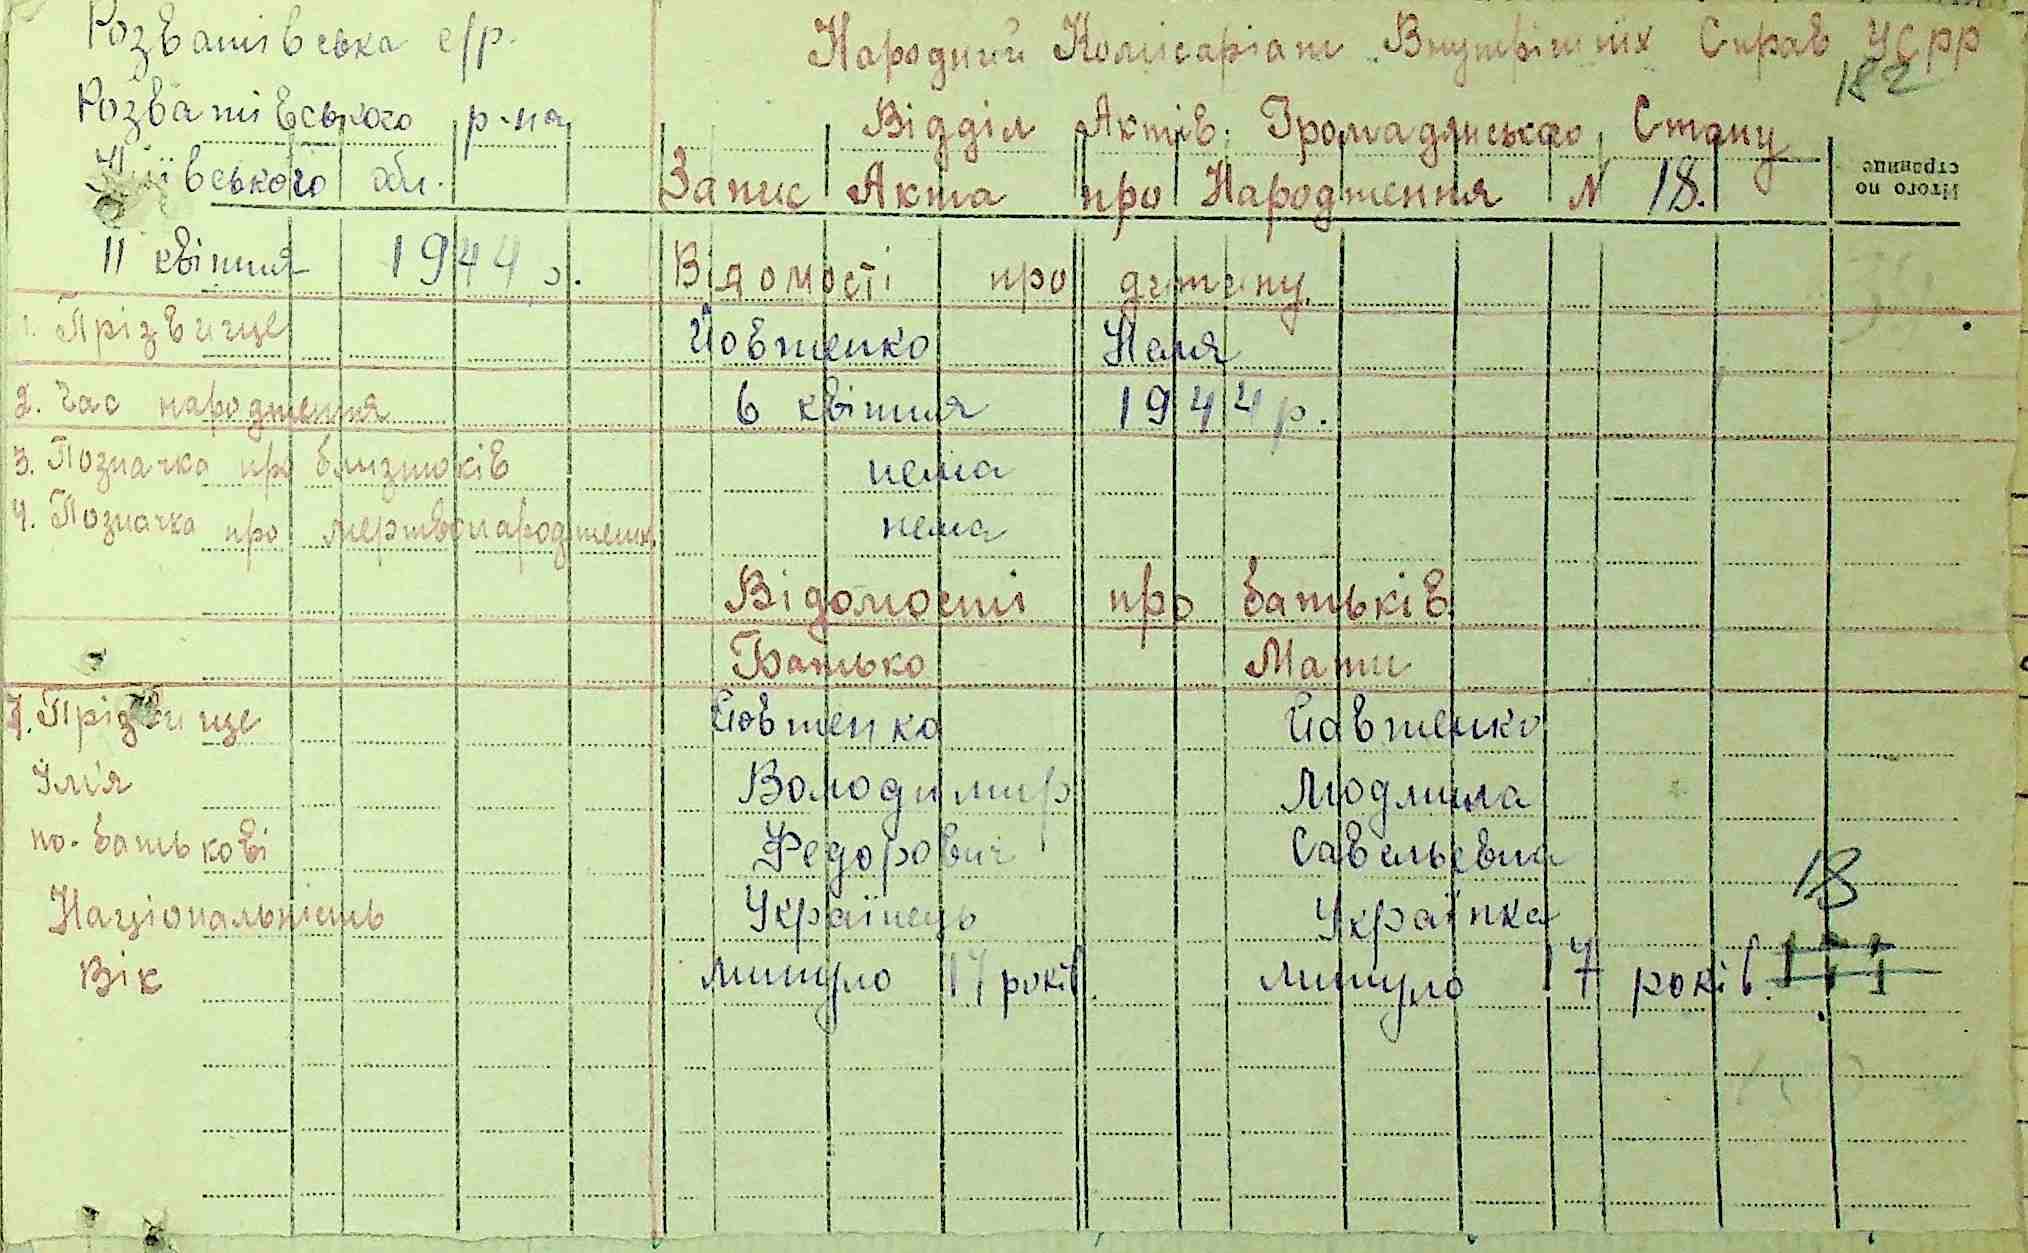 Розватівська с/р.
Розватівського р-на
Київського обл.
Народний Комісаріат Внутрішніх Справ УСРР
182
Відділ Актів Громадянського Стану
Запис Акта про Народження N 18.
Итого по странице
11 квітня 1944 р.
Відомості про дитину
1. Прізвище Йовтенко Неля
2. Час народження 6 квітня 1944 р.
3. Позначка про близнюків нема
4. Позначка про мертвонароджен. нема
Відомості про батьків
Батько Мати
7. Прізвище Йовтенко Йовтенко
Ім'я Володимир Людмила
по-батькові Федорович Савельевна
Національність Українець Українка
18
Вік минуло 17 років. минуло 17 років.